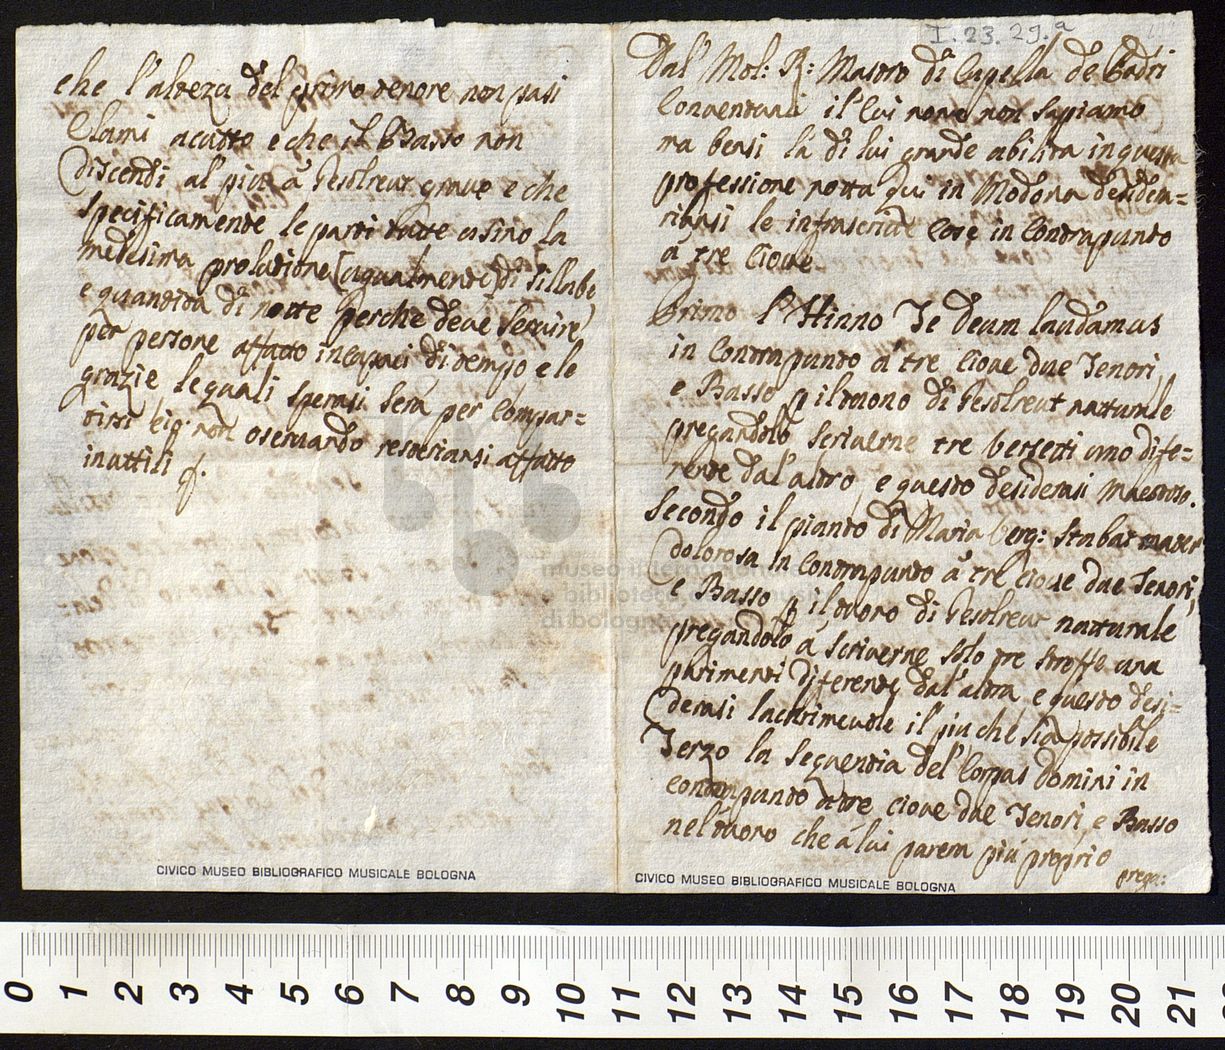 I. 23. 29. a
che l'alteza del primo tenore non pasi
Elami acutto e che il Basso non
discendi al piu à Gesolreut grave e che
specificamente le parti tutte
medesima prolatione (egualmente) di sillabe
e quantità di notte perche deve servire
per persone affatto incapaci di tempo e le
grazie le quali sperasi sera per Compar=
tirsi non oservando restariansi affatto
inuttili
Dal' Mol: R: Mastro di Capella de Padri
Conventuali il cui nome non sapiamo
ma bensi la di lui grande abilita in questa
professione notta qui in Modona desidera=
riansi le infrascritte cose in Contrapunto
à tre cioue
Primo l'Hinno Te Deum laudamus
in Contrapunto à tre cioue due Tenori,
e Basso p il tuono di Gesolreut natturale
pregandolo scriverne tre versetti uno dife=
rente dal'altro, e questo desiderasi maestoso.
Secondo il pianto di Maria Verg: Stabat mater
dolorosa in Contrapunto à tre cioue due Tenori,
e Basso p il tuono di Gesolreut natturale
pregandolo à scriverne solo tre stroffe una
parimenti diferente dal'altra e questo desi=
derasi lachrimevole il piu che sia possibile
Terzo la Sequentia del' Corpus Domini in
contrapunto à tre cioue due Tenori, e Basso
nel tuono che à lui parera piú proprio
prega:
museo internazionale
e biblioteca musica
di bologna
CIVICO MUSEO BIBLIOGRAFICO MUSICALE BOLOGNA
CIVICO MUSEO BIBLIOGRAFICO MUSICALE BOLOGNA
0 1 2 3 4 5 6 7 8 9 10 11 12 13 14 15 16 17 18 19 20 21